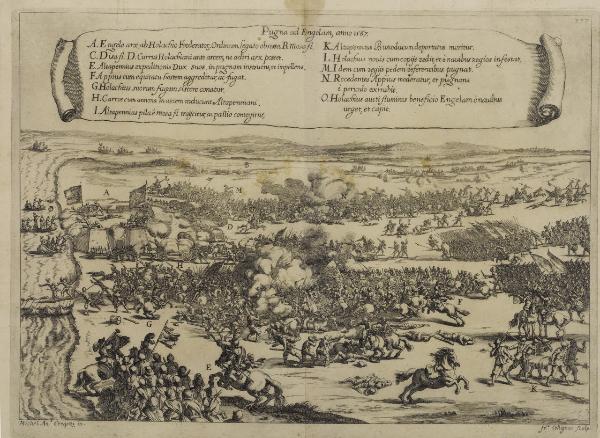 Pugna ad Engelam, anno 1587.
A. Engela arx ab Holachio Foederatoꝝ Ordinum legato obsessa. B. Mosa fl.
C. Diesa fl. D. Currus Holachiani ante arcem, ne adiri arx posset.
E. Altapennius expeditionis Dux, suos, in pugnam instructos, impellens.
F. Appius cum equitatu hostem aggreditur, ac fugat.
G. Holachius suorum fugam sistere conatur.
H. Carros cum annona in usum inducunt Altapenniani,
I. Altapennius pila è mosa fl. traijcitur, ac pallio contegitur.
K. Altapennius Buscoducum deportatus moritur.
L. Holachius nouis cum copijs redit, et è nauibus regios infestat.
M. Idem cum regijs pedem referentibus pugnat.
N. Recedentes Appius moderatur, et pugnam
è periculo eximit.
O. Holachius aucti fluminis beneficio Engelam è nauibus
urget, et capit.
A
B
M
D
F
G
E
K
Michel An.
in.
sculp.